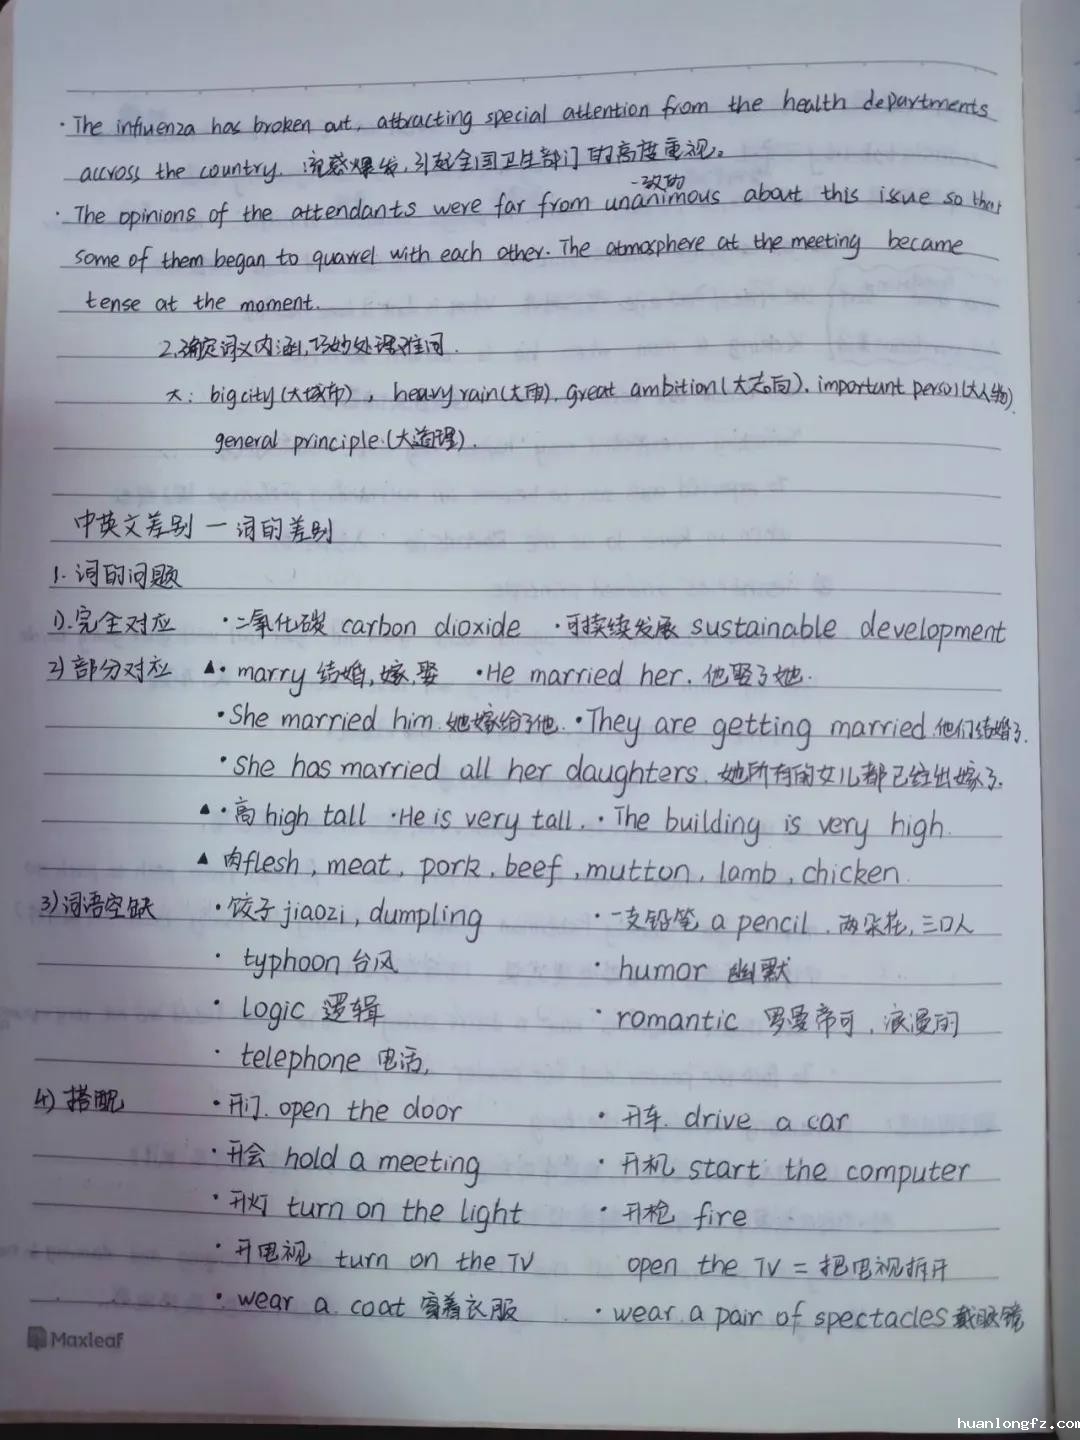 · The influenza has broken out, attracting special attention from the health departments
accross the country. 流感爆发,引起全国卫生部门的高度重视。
一致的
· The opinions of the attendants were far from unanimous about this issue so that
some of them began to quarrel with each other. The atmosphere at the meeting became
tense at the moment.
2.确定词义内涵,巧妙处理难词.
大: big city(大城市), heavy rain(大雨), great ambition(大志向), important person(大人物)
general principle.(大道理).
中英文差别 — 词的差别
1. 词的问题
1).完全对应 ·二氧化碳 carbon dioxide ·可持续发展 sustainable development
2)部分对应 ▲· marry 结婚,嫁,娶 ·He married her. 他娶了她.
·She married him. 她嫁给了他. ·They are getting married 他们结婚了.
·She has married all her daughters. 她所有的女儿都已经出嫁了.
▲·高 high tall ·He is very tall. ·The building is very high.
▲ 肉flesh, meat, pork, beef, mutton, lamb, chicken.
3)词语空缺 ·饺子 jiaozi, dumpling ·一支铅笔 a pencil, 两朵花, 三口人
· typhoon 台风 · humor 幽默
· logic 逻辑 · romantic 罗曼帝可, 浪漫的
· telephone 电话,
4)搭配 ·开门. open the door ·开车. drive a car
·开会 hold a meeting ·开机 start the computer
·开灯 turn on the light ·开枪 fire
·开电视 turn on the TV open the TV = 把电视拆开
·wear a coat 穿着衣服 ·wear a pair of spectacles 戴眼镜
Maxleaf
huanlongfz.com